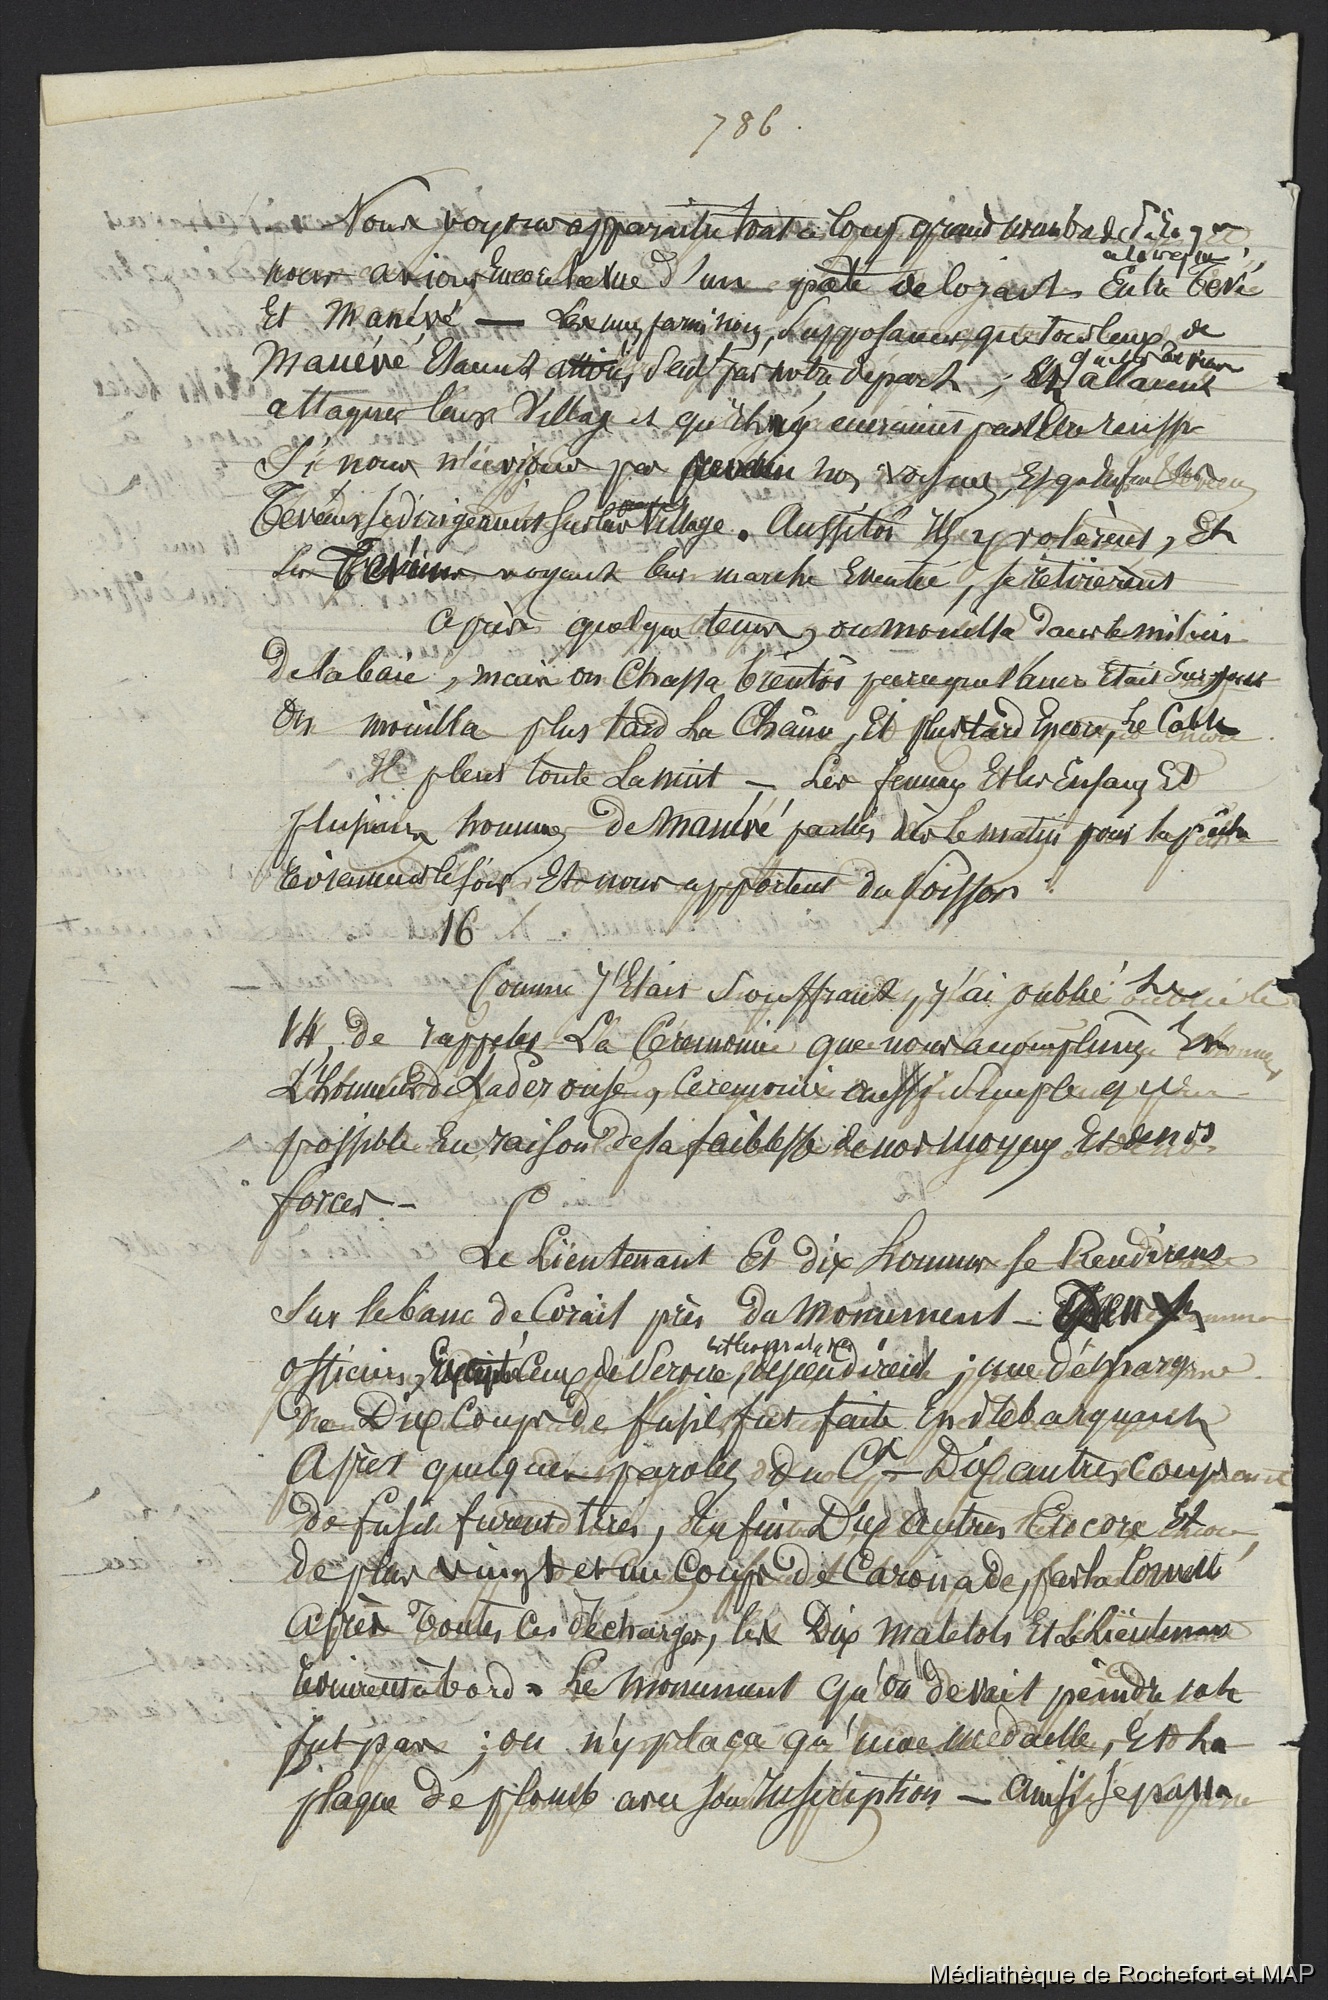 786.
Nous voyons apparaitre tout à coup grand nombre de pirogues
à la voisine
nous avions Encore la vue d'un pâté de lozarts Entre Tévé
Et Manévé — Les uns parmi nous, supposames que tous ceux de
Manévé Etaient attirés seul par notre départ, Et qu'ils allaient
attaquer leur Village et qu'ils y auraient peut être reussi
Si nous n'avions pas prevenu nos voisins, Et qu'enfin les
Tévéens se dirigeaient sur leur Village. Aussitot ils y volèrent, Et
Les Tévéens voyant leur marche Eventée, se retirèrent
Après quelque tems, on mouilla dans le milieu
De la baie, mais on Chassa bientôt parceque l'ancre Etait surjouée
On mouilla plus tard La Chaine, Et plus tard Encore, Le Cable
Il pleut toute La nuit — Les femmes Et les Enfans Et
plusieurs hommes de Manévé partis dès le matin pour la pêche
Reviennent le soir Et nous apportent du poisson.
16
Comme J'Etais souffrant, j'ai oublié Le
14, de rappeler La Cérémonie que nous accomplimes En
L'honneur de Lapérouse, Ceremonie aussi simple que
possible En raison de la faiblesse de nos moyens Et de nos
forces —
Le Lieutenant Et dix hommes se Rendirent
Sur le banc de Corail près du Monument —
officiers, Excepté Ceux de service descendirent ; une décharge
De Dix Coups de fusil fut faite En debarquant
Après quelques paroles du Ct — Dix autres Coups
de fusil furent tirés, Enfin Dix autres Encore Et
de plus vingt et un Coups De Caronade, par la Corvette
Après Toutes Ces Décharges, les Dix Matelots Et Le Lieutenant
Revinrent à bord. Le Monument qu'on devait peindre ne le
fut pas ; on n'y plaça qu'une médaille, Et La
plaque de plomb avec son Inscription — Ainsi se passa
Médiathèque de Rochefort et MAP